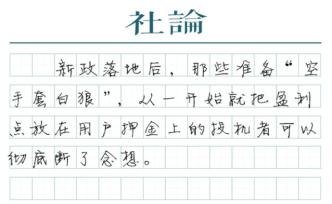 社論
新政落地后，那些准备“空
手套白狼”，从一开始就把盈利
点放在用户押金上的投机者可以
彻底断了念想。